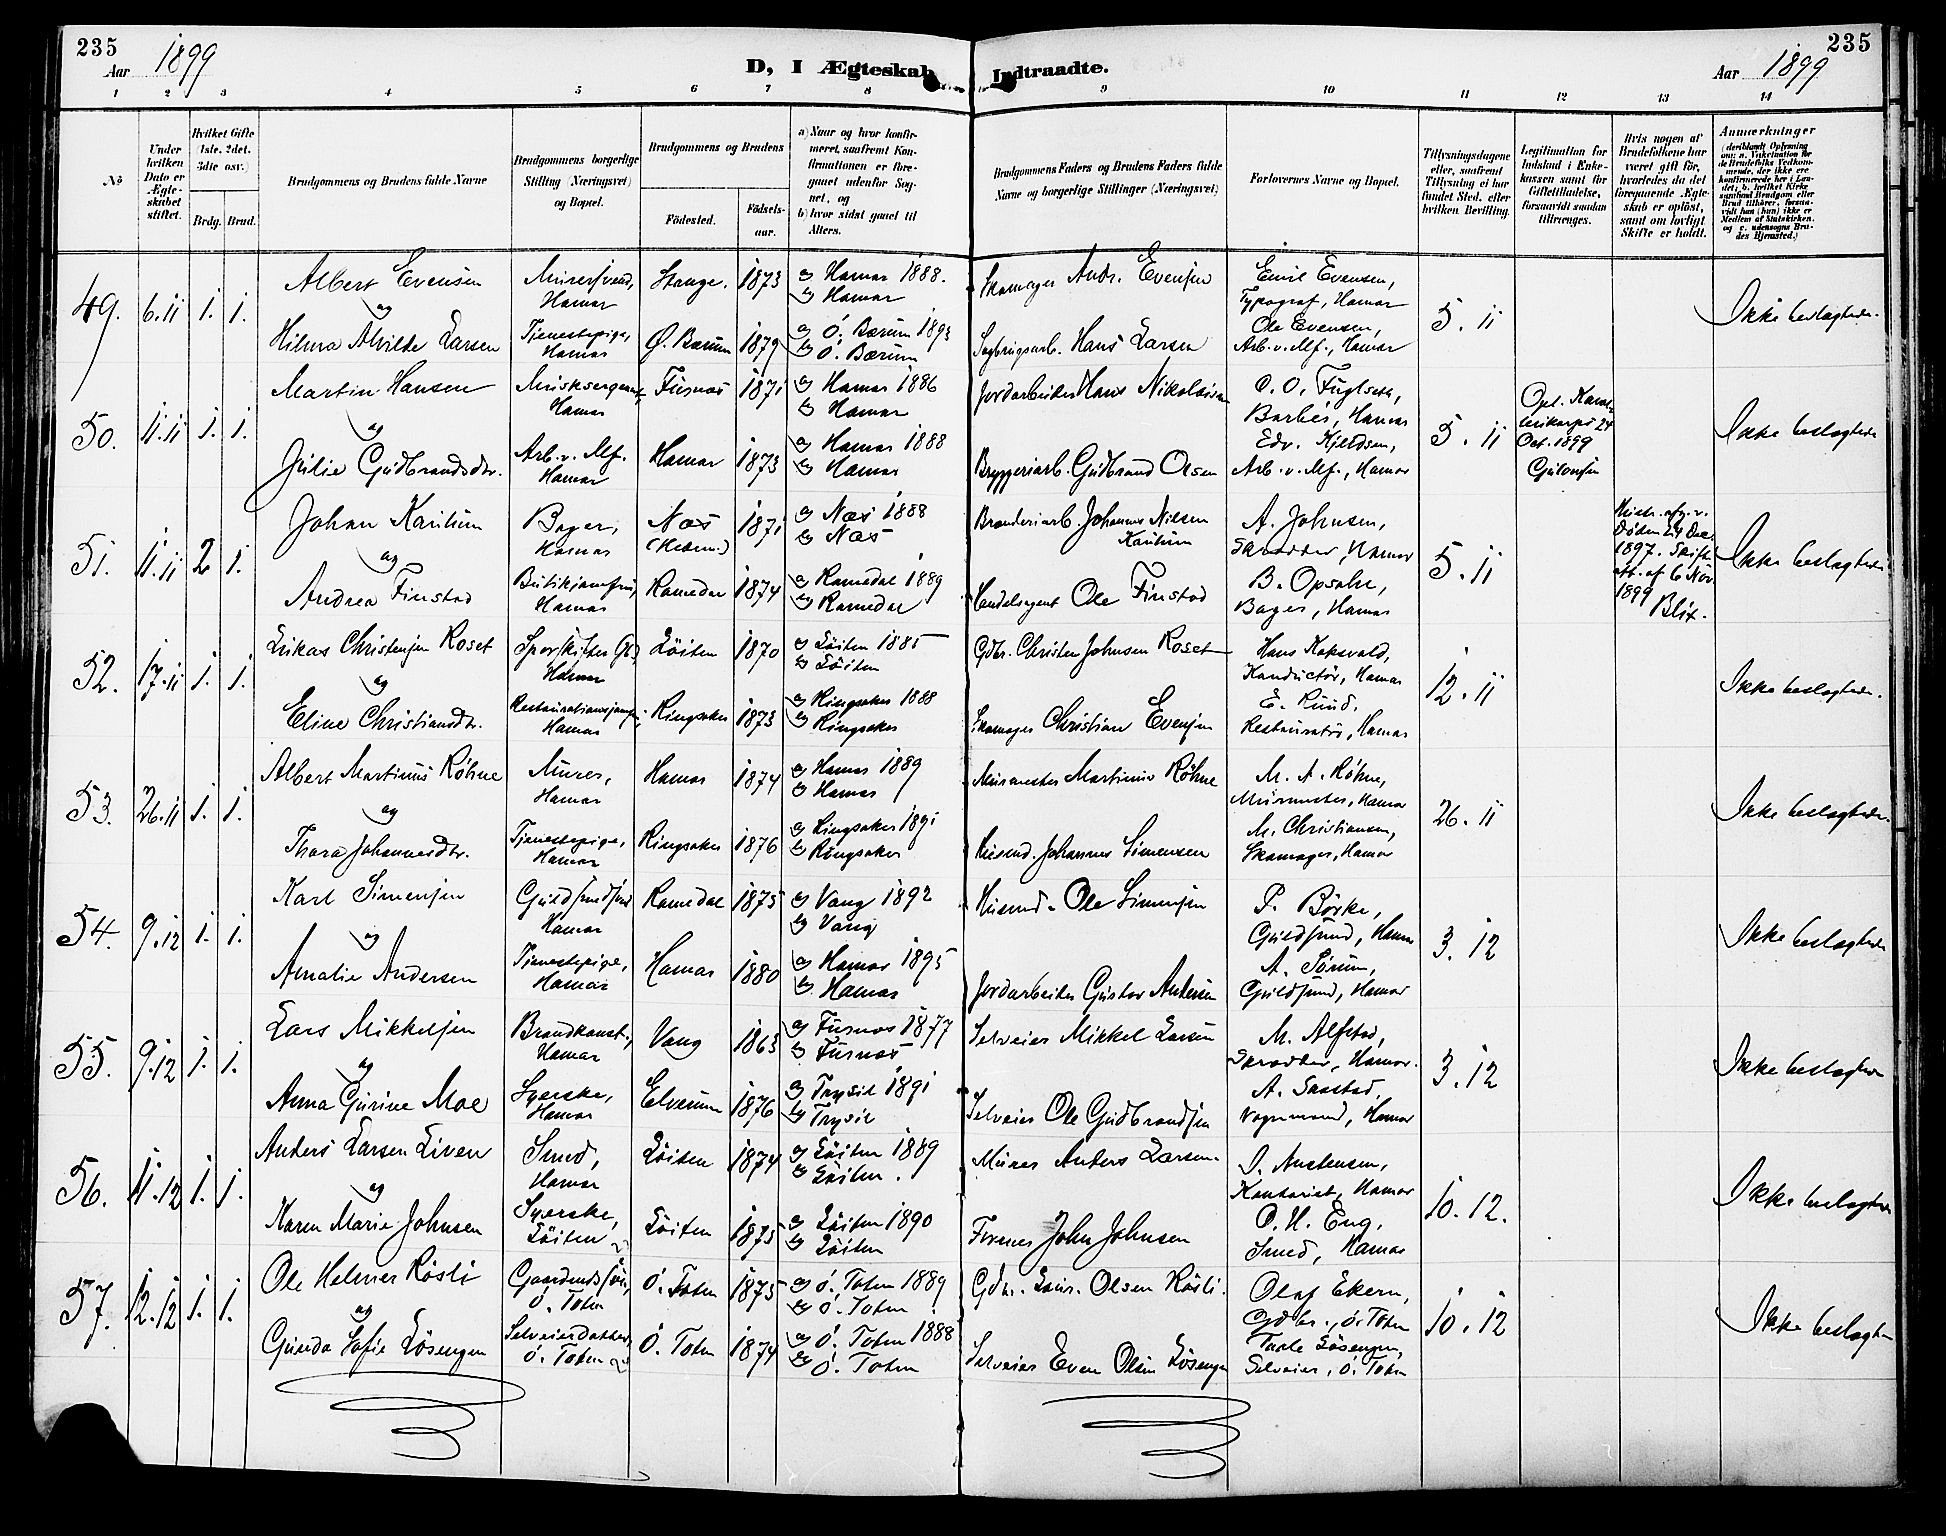 235
Aar 1899
D, I Ægteskab Indtraadte.
Aar 1899
235
1 2 3 4 5 6 7 8 9 10 11 12 13 14
No
Under hvilken Dato er Ægteskabet stiftet.
Hvilket Gifte (1ste, 2det, 3die osv.)
Brdg. Brud.
Brudgommens og Brudens fulde Navne
Brudgommens borgerlige Stilling (Næringsvei) og Bopæl.
Brudgommens og Brudens
Födested.
Födselsaar.
a) Naar og hvor konfirmeret, saafremt Konfirmationen er foregaaet udenfor Sognet, og
b) hvor sidst gaaet til Alters.
Brudgommens Faders og Brudens Faders fulde Navne og borgerlige Stillinger (Næringsvei)
Forlovernes Navne og Bopæl.
Tillysningsdagene eller, saafremt Tillysning ei har fundet Sted, efter hvilken Bevilling.
Legitimation for Indskud i Enkekassen samt for Giftetilladelse, forsaavidt saadan tiltrænges.
Hvis nogen af Brudefolkene har været gift för, hvorledes da det foregaaende Ægteskab er oplöst, samt om lovligt Skifte er holdt.
Anmærkninger (deriblandt Oplysning om: a. Vakcination for de Brudefolks Vedkommende, der ikke ere konfirmerede her i Landet; b. hvilket Kirkesamfund Brudgom eller Brud tilhører, forsaavidt han (hun) ikke er Medlem af Statskirken, og c. udensogns Brudes Hjemsted.)
49. 6.11 1. 1.
Albert Evensen
Murersvend, Hamar
Stange. 1873
a) Hamar 1888.
b) Hamar
Skomager Andr. Evensen
Emil Evensen,
Typograf, Hamar
5. 11
Ikke beslægtede.
og
Hilma Alvilde Larsen
Tjenestepige, Hamar
Ø. Bærum 1879
a) Ö. Bærum 1893
b) Ö. Bærum
Sagbrugsarb. Hans Larsen
Ole Evensen,
Arb. v. Mf., Hamar
50. 11.11 1. 1.
Martin Hansen
Musiksergeant, Hamar
Furnæs 1871
a) Hamar 1886
b) Hamar
Jordarbeider Hans Nikolaisen
O. O. Fuglseth,
Barber, Hamar
5. 11
24 Oct. 1899
Ikke beslægtede
og
Julie Gudbrandsdtr.
Arb. v. Mf. Hamar
Hamar 1873
a) Hamar 1888
b) Hamar
Bryggeriarb. Gudbrand Olsen
Edv. Kjeldsen,
Arb. v. Mf., Hamar
51. 11.11 2 1.
Johan Karihum
Bager, Hamar
Næs (Hedem.) 1871
a) Næs 1888
b) Næs
Brænderiarb. Johannes Nilsen Karihum
A. Johnsen,
Skrædder, Hamar
5. 11
Hustr. afg. v. Døden 24 Dec. 1897. Skifte att. af 6 Nov. 1899 Blix.
Ikke beslægtede
og
Andrea Finstad
Butikjomfru, Hamar
Romedal 1874
a) Romedal 1889
b) Romedal
Handelsagent Ole Finstad
B. Opsahl,
Bager, Hamar
52. 17.11 1. 1.
Lukas Christensen Roset
Sporskifter Hamar
Löiten 1870
a) Löiten 1885
b) Löiten
Gdbr. Christen Johnsen Roset
Hans Koksvold,
Konductör, Hamar
12. 11
Ikke beslægtede.
og
Eline Christiansdtr.
Restaurationsjomfru, Hamar
Ringsaker 1873
a) Ringsaker 1888
b) Ringsaker
Skomager Christian Evensen
E. Ruud,
Restauratör, Hamar
53. 26.11 1. 1.
Albert Martinus Röhne
Murer, Hamar
Hamar 1874
a) Hamar 1889
b) Hamar
Murmester Martinius Röhne
M. A. Röhne,
Murmester, Hamar
26. 11
Ikke beslægtede.
og
Thora Johannesdtr.
Tjenestepige, Hamar
Ringsaker 1876
a) Ringsaker 1891
b) Ringsaker
Husmd. Johannes Simensen
M. Christiansen,
Skomager, Hamar
54. 9.12 1. 1.
Karl Simensen
Guldsmedsvend Hamar
Romedal 1875
a) Vang 1892
b) Vang
Husmd. Ole Simensen
P. Börke,
Guldsmed, Hamar
3. 12
Ikke beslægtede
og
Amalie Andersen
Tjenestepige, Hamar
Hamar 1880
a) Hamar 1895
b) Hamar
Jordarbeider Gustav Andersen
A. Sörum,
Guldsmed, Hamar
55. 9.12 1. 1.
Lars Mikkelsen
Brandkonst., Hamar
Vang 1863
a) Furnæs 1877
b) Furnæs
Selveier Mikkel Larsen
M. Alfstad,
Skrædder, Hamar.
3. 12
Ikke beslægtede
og
Anna Gurine Moe
Syerske, Hamar
Elverum 1876
a) Trysil 1891
b) Trysil
Selveier Ole Gudbrandsen
A. Saastad,
Vognmand, Hamar
56. 11.12 1. 1.
Anders Larsen Liven
Smed, Hamar
Löiten 1874
a) Löiten 1889
b) Löiten.
Murer Anders Larsen.
O. Austensen,
Kontorist, Hamar
10. 12.
Ikke beslægtede
og
Karen Marie Johnsen
Syerske, Löiten
Löiten 1875
a) Löiten 1890
b) Löiten
John Johnsen
O. H. Eng,
Smed, Hamar
57. 12.12 1. 1.
Ole Helmer Rösli
Gaardmdssön, Ö. Toten
Ö. Toten 1875
a) Ö. Toten 1889
b) Ö. Toten
Gdbr. Olsen Rösli.
Olaf Ekern,
Gdbr., Ö. Toten
10. 12
Ikke beslægt
og
Gunda Sofie Lösengen
Selveierdatter, Ö. Toten
Ö. Toten 1874
a) Ö. Toten 1888
b) Ö. Toten
Selveier Even Olsen Lösengen
Lösengen,
Selveier, Ö. Toten